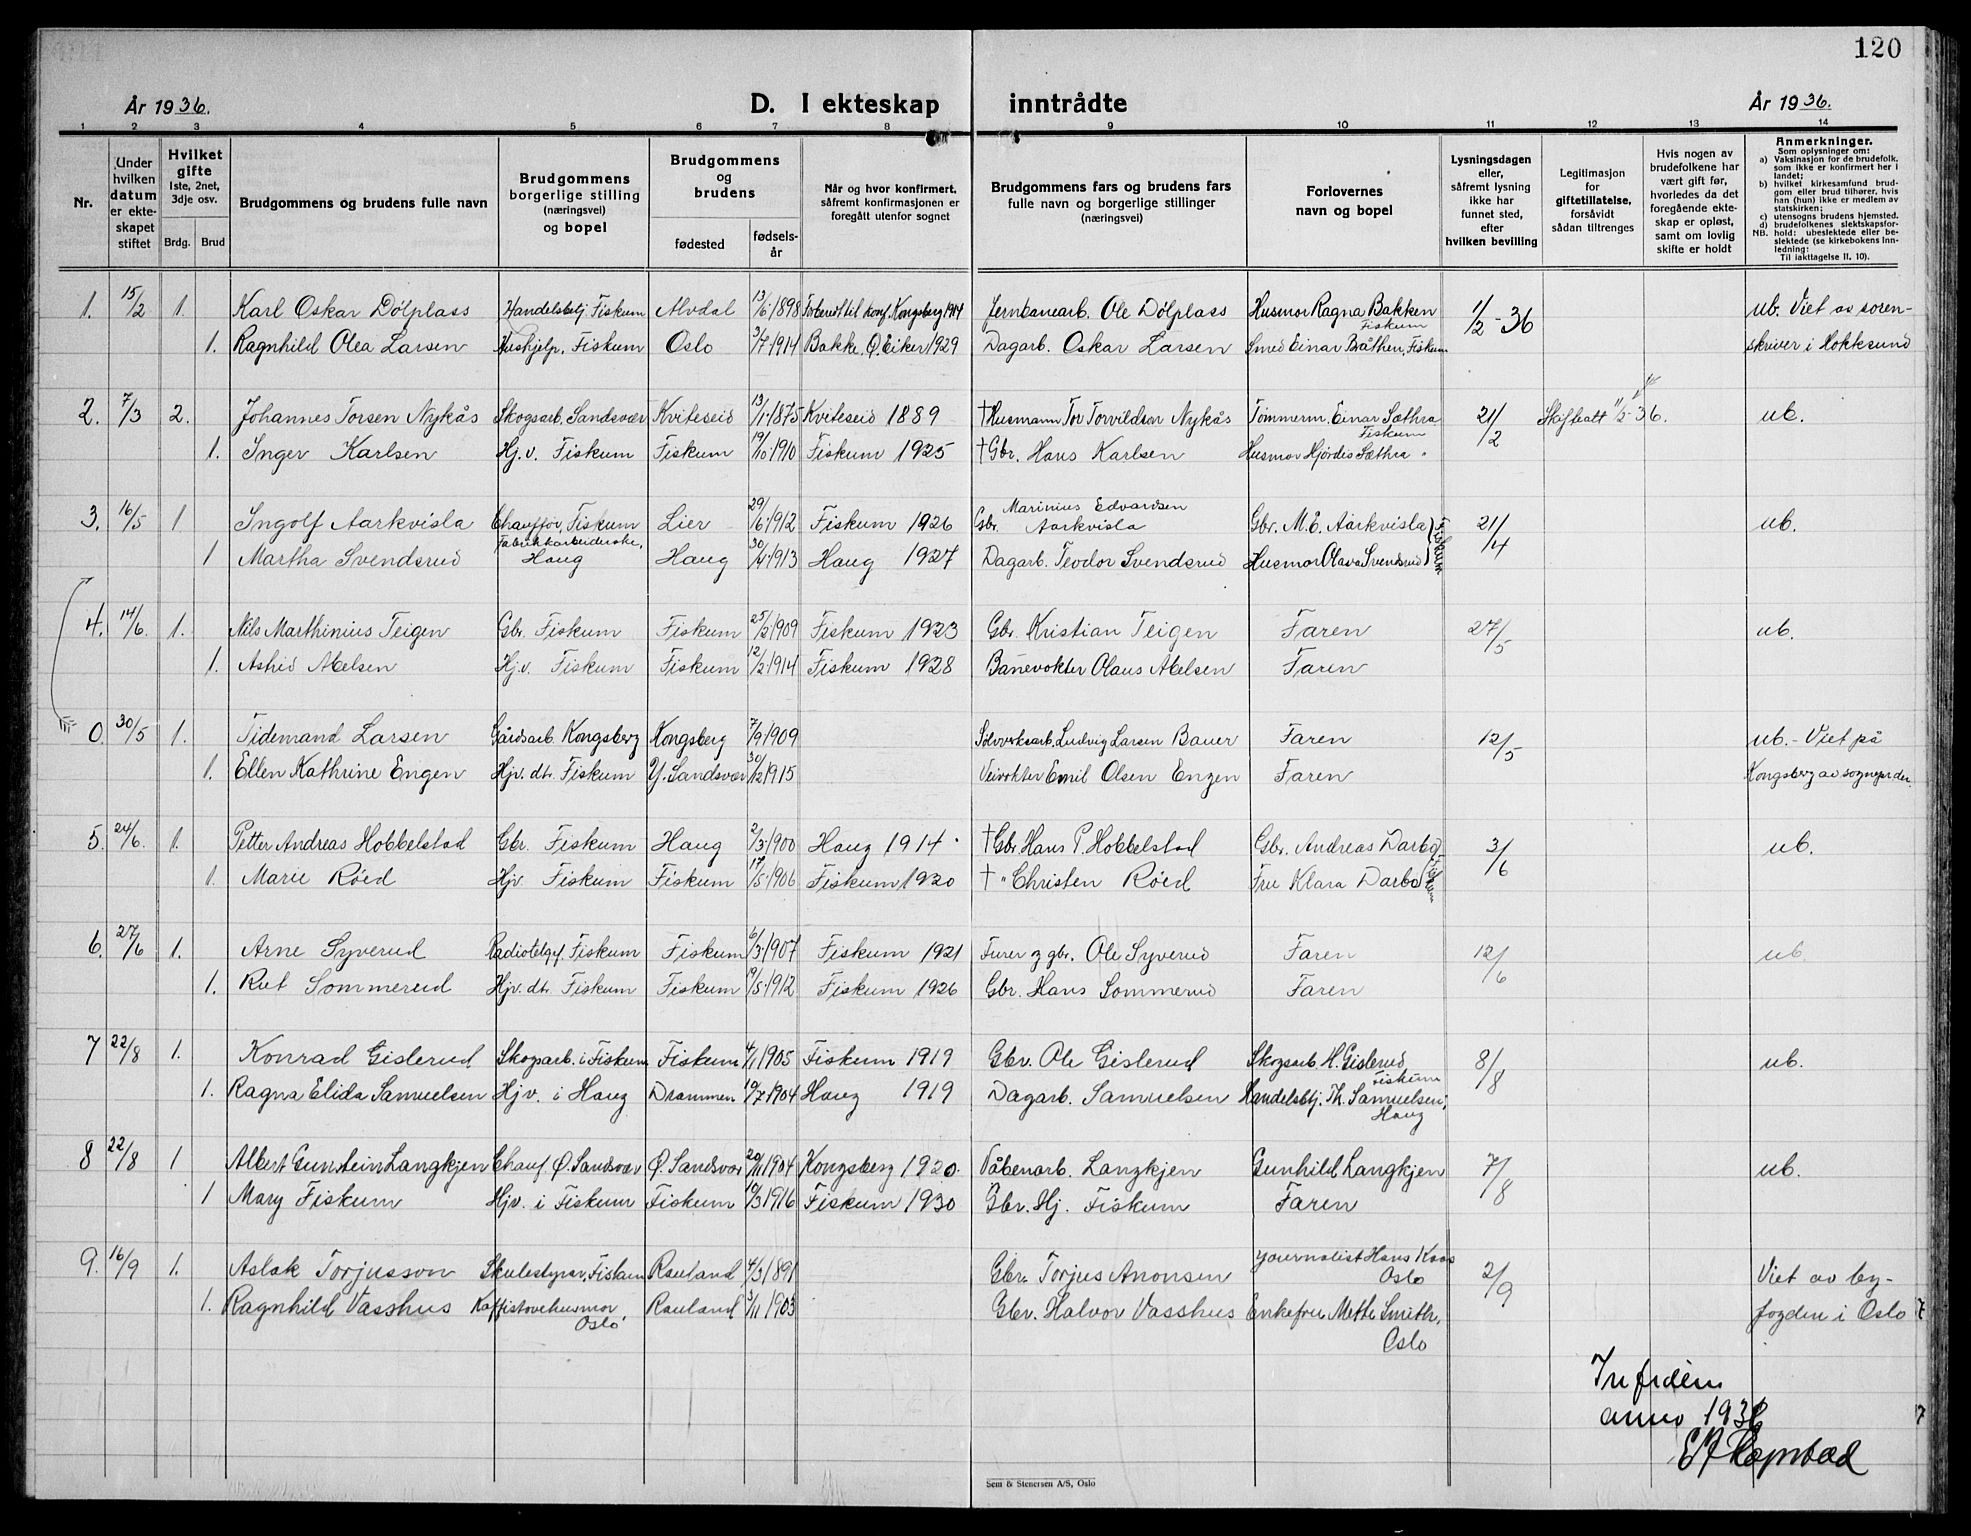 120
År 1936.
D. I ekteskap inntrådte
År 1936.
1 2 3 4 5 6 7 8 9 10 11 12 13 14
Nr.
Under hvilken datum er ekteskapet stiftet
Hvilket gifte 1ste, 2net, 3dje osv.
Brdg. Brud
Brudgommens og brudens fulle navn
Brudgommens borgerlige stilling (næringsvei) og bopel
Brudgommens og brudens
fødested
fødselsår
Når og hvor konfirmert, såfremt konfirmasjonen er foregått utenfor sognet
Brudgommens fars og brudens fars fulle navn og borgerlige stillinger (næringsvei)
Forlovernes navn og bopel
Lysningsdagen eller, såfremt lysning ikke har funnet sted, efter hvilken bevilling
Legitimasjon for giftetillatelse, forsåvidt sådan tiltrenges
Hvis nogen av brudefolkene har vært gift før, hvorledes da det foregående ekteskap er opløst, samt om lovlig skifte er holdt
Anmerkninger.
Som oplysninger om:
a) Vaksinasjon for de brudefolk, som ikke er konfirmert her i landet;
b) hvilket kirkesamfund brudgom eller brud tilhører, hvis han (hun) ikke er medlem av statskirken;
c) utensogns brudens hjemsted.
d) brudefolkenes slektskapsforhold: ubeslektede eller beslektede (se kirkebokens Innledning:
NB.
Til iakttagelse II, 10).
1. 15/2 1. Karl Oskar Dölplass Handelsbetj. Fiskum Alvdal 13/6 1898 Forberedt til konf. Kongsberg 1914 Jernbanearb. Ole Dölplass Husmor Ragna Bakken Fiskum 1/2-36 ub. Viet av soren-
1. Ragnhild Olea Larsen Hushjelp, Fiskum Oslo 3/7 1914 Bakke. Ø. Eiker 1929 Dagarb. Oskar Larsen Smed Einar Bråthen, Fiskum skriver i Hokksund
2. 7/3 2. Johannes Torsen Nykås Skogsarb. Sandsvær Kviteseid 13/1 1875 Kviteseid 1889 † Husmann Tor Torvildsen Nykås Tømmerm. Einar Sæthra Fiskum 21/2 Skifteatt 11/5-36. ub.
1. Inger Karlsen Hj.v. Fiskum Fiskum 19/10 1910 Fiskum 1925 † Gbr. Hans Karlsen Husmor Hjördis Sæthra "
3. 16/5 1 Ingolf Aarkvisla Chauffør, Fiskum Lier 29/6 1912 Fiskum 1926 Gbr. Marinius Edvardsen Aarkvisla Gbr. M.E. Aarkvisla 21/4 ub.
1 Martha Svendsrud Fabrikkarbeiderske, Haug Haug 30/4 1913 Haug 1927 Dagarb. Teodor Svendsrud Husmor Olava Svendsrud Fiskum
4. 14/6. 1. Nils Marthinius Teigen Gbr. Fiskum Fiskum 25/2 1909 Fiskum 1923 Gbr. Kristian Teigen Faren 27/5 ub.
1. Astrid Abelsen Hj.v. Fiskum Fiskum 12/2 1914 Fiskum 1928 Banevokter Olaus Abelsen Faren
0. 30/5 1. Tidemand Larsen Gårdsarb. Kongsberg Kongsberg 7/9 1909 Sölvverksarb. Ludvig Larsen Bauer Faren 12/5 ub. - Viet på
1. Ellen Kathrine Engen Hjv. dtr. Fiskum Y. Sandsvær 30/12 1915 Veivokter Emil Olsen Engen Faren Kongsberg av sogneprden.
5. 24/6. 1. Petter Andreas Hobbelstad Gbr. Fiskum Haug 2/3 1900 Haug 1914 † Gbr Hans P. Hobbelstad Gbr. Andreas Darbo 3/6 ub.
1. Marie Röed Hjv. Fiskum Fiskum 17/5 1906 Fiskum 1920 † " Christen Röed Fru Klara Darbo Fiskum
6. 27/6 1. Arne Syverud Radiotelgrf. Fiskum Fiskum 6/3 1907 Fiskum 1921 Furer og gbr. Ole Syverud Faren 12/6 ub.
1. Rut Sommerud Hjv. dtr. Fiskum Fiskum 19/5 1912 Fiskum 1926 Gbr. Hans Sommerud Faren
7 22/8 1. Konrad Gislerud Skogsarb. i Fiskum Fiskum 4/11 1905 Fiskum 1919 Gbr. Ole Gislerud Skogsarb. H. Gislerud Fiskum 8/8 ub.
1. Ragna Elida Samuelsen Hjv. i Haug Drammen 19/7 1904 Haug 1919 Dagarb. Samuelsen Handelsbtj. Th. Samuelsen, Haug
8 22/8 1 Albert Gunstein Langkjen Chauf. Ø. Sandsvær Ø. Sandsvær 20/11 1904 Kongsberg 1920. Våbenarb. Langkjen Gunhild Langkjen 7/8 ub.
1 Mary Fiskum Hjv. i Fiskum Fiskum 19/3 1916 Fiskum 1930 Gbr. Hj. Fiskum Faren
9. 16/9 1. Aslak Torjusson Skulestyrar, Fiskum Rauland 4/3 1891 Gbr. Torjus Anonsen Journalist Hans Kaas Oslo 2/9 Viet av by-
1. Ragnhild Vasshus Kaffistovehusmor Oslo Rauland 3/11 1903 Gbr. Halvor Vasshus Enkefru Mette Smith, Oslo fogden i Oslo
In fidem
anno 1936
Sem & Stenersen A/S, Oslo